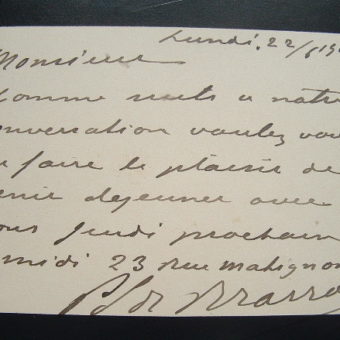 Lundi. 22/6 19
Monsieur
Comme suite a notre
conversation voulez vou
faire le plaisir de
venir dejeuner avec
ous Jeudi prochain
midi 23 rue matignon